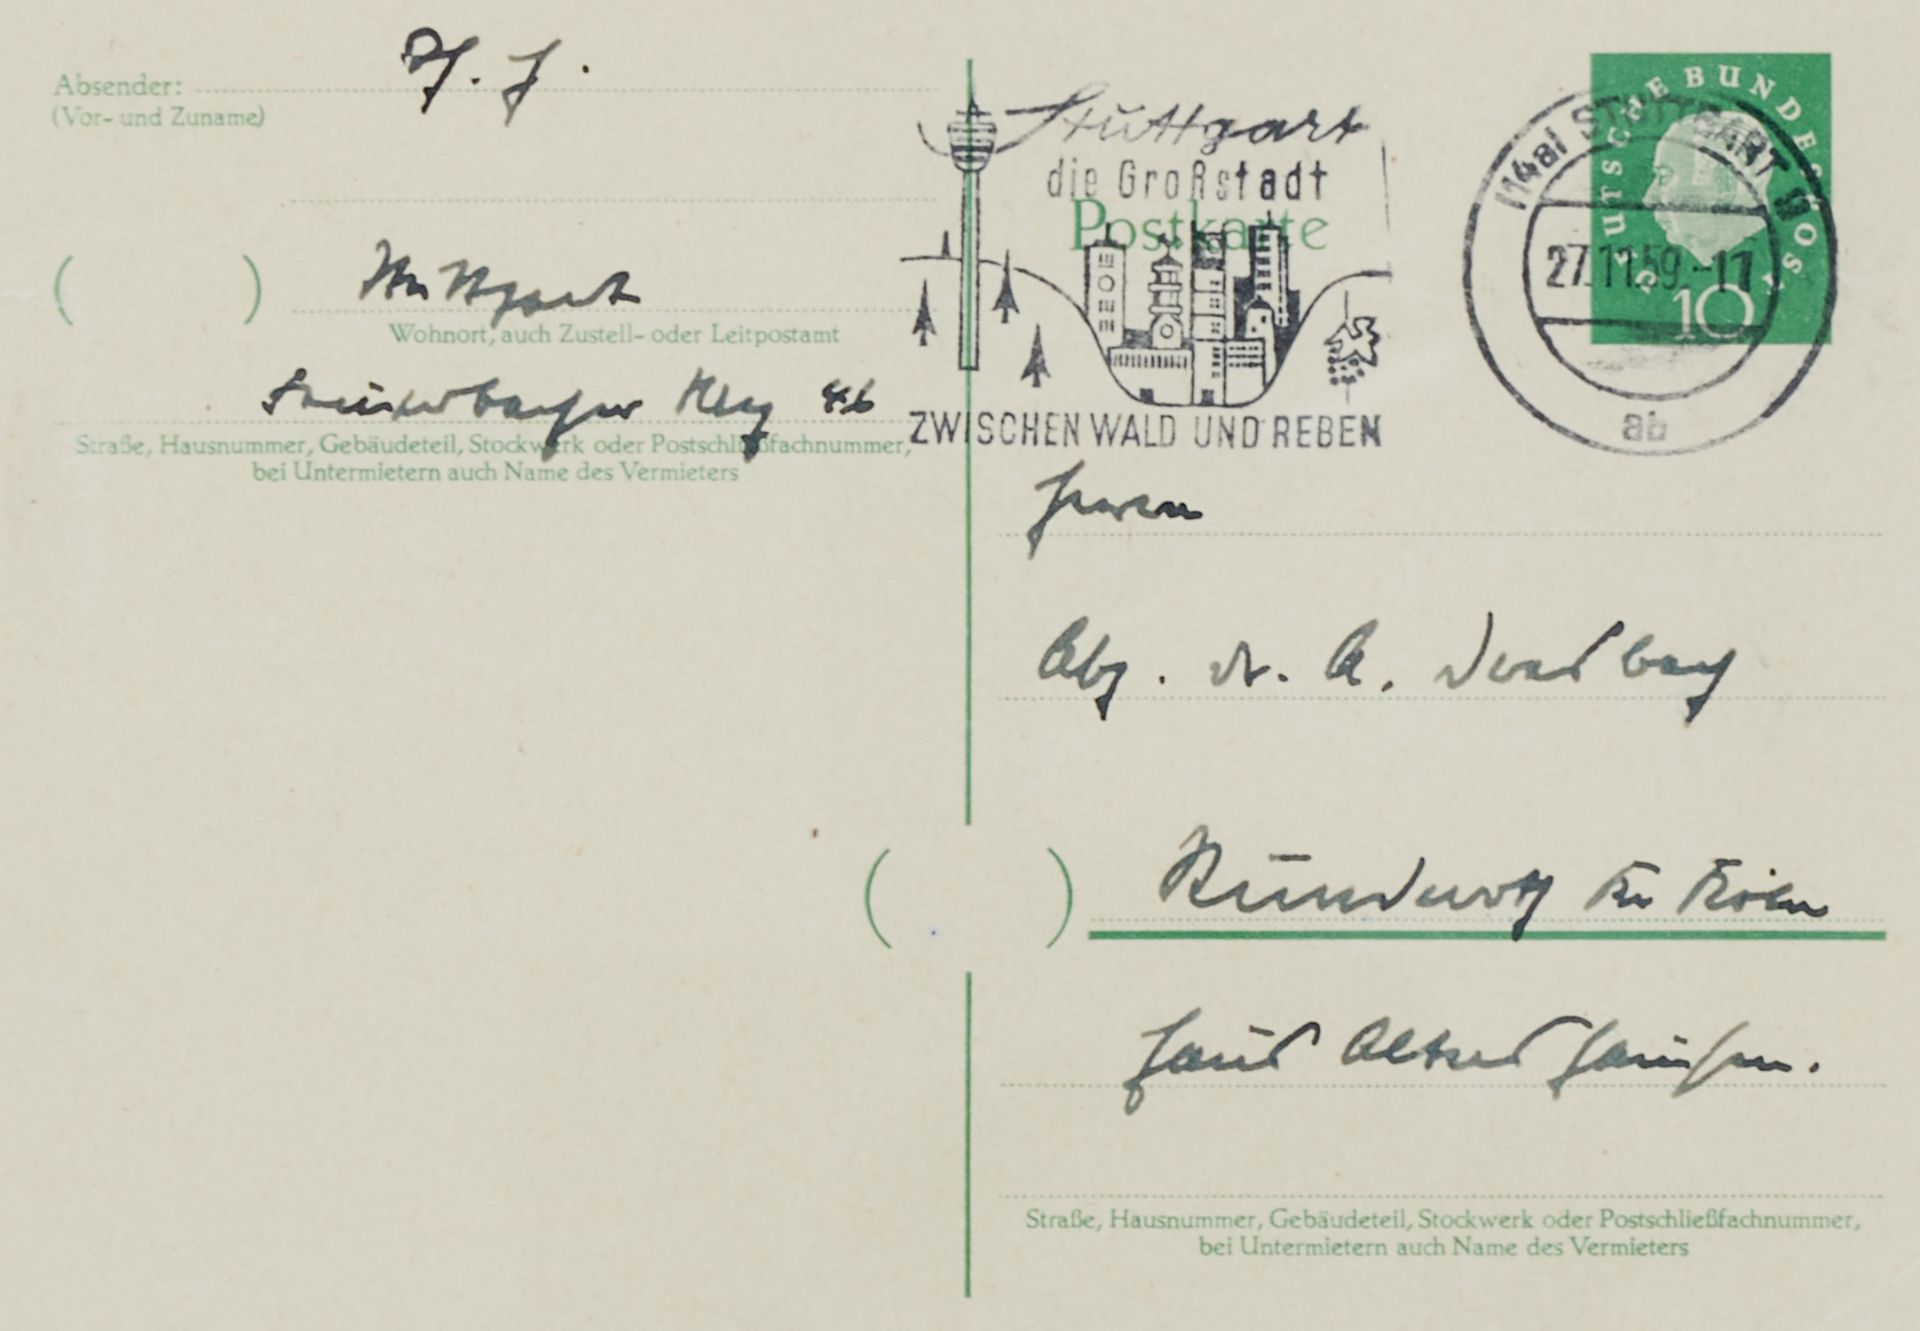 Absender:
(Vor- und Zuname)
Stuttgart
Wohnort, auch Zustell- oder Leitpostamt
Weg 46
Straße, Hausnummer, Gebäudeteil, Stockwerk oder Postschließfachnummer,
bei Untermietern auch Name des Vermieters
Stuttgart
die Großstadt
ZWISCHEN WALD UND REBEN
Postkarte
DEUTSCHE BUNDESPOST
10
(14a) STUTTGART 9
27.11.59.-17
ab
Herrn
Abg. Dr. A.
Ründeroth Kr Köln
Haus
Straße, Hausnummer, Gebäudeteil, Stockwerk oder Postschließfachnummer,
bei Untermietern auch Name des Vermieters